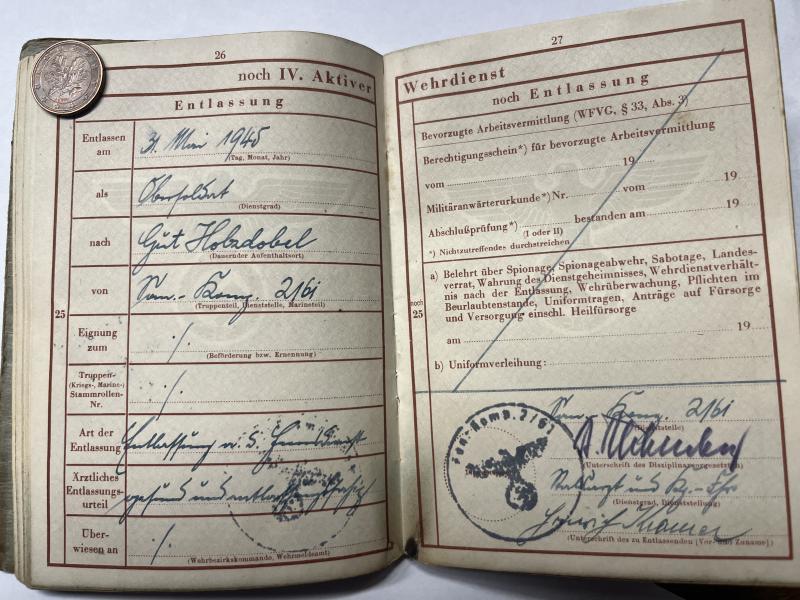 26
noch IV. Aktiver
Entlassung
Entlassen am
31. Mai 1945
(Tag, Monat, Jahr)
als
Obersoldat
(Dienstgrad)
nach
Gut Holzdobel
(Dauernder Aufenthaltsort)
von
San.-Komp. 2/61
(Truppenteil, Dienststelle, Marineteil)
25
Eignung zum
./.
(Beförderung bzw. Ernennung)
Truppen-
(Kriegs-, Marine-)
Stammrollen-
Nr.
./.
Art der Entlassung
Entlassung a. d.
Ärztliches
Entlassungs-
urteil
gesund und
Über-
wiesen an
./.
(Wehrbezirkskommando, Wehrmeldeamt)
27
Wehrdienst
noch Entlassung
Bevorzugte Arbeitsvermittlung (WFVG, § 33, Abs. 3)
Berechtigungsschein*) für bevorzugte Arbeitsvermittlung
vom 19
Militäranwärterurkunde*) Nr. vom 19
Abschlußprüfung*) bestanden am 19
(I oder II)
*) Nichtzutreffendes durchstreichen
noch
25
a) Belehrt über Spionage, Spionageabwehr, Sabotage, Landes-
verrat, Wahrung des Dienstgeheimnisses, Wehrdienstverhält-
nis nach der Entlassung, Wehrüberwachung, Pflichten im
Beurlaubtenstande, Uniformtragen, Anträge auf Fürsorge
und Versorgung einschl. Heilfürsorge
am 19
b) Uniformverleihung:
San.-Komp. 2/61
(Dienststelle)
San.-Komp. 2/61
(Unterschrift des Disziplinarvorgesetzten)
Stabsarzt und
(Dienstgrad, Dienststellung)
(Unterschrift des zu Entlassenden [Vor- und Zuname])